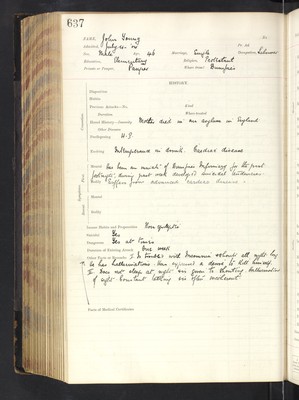 637
NAME, John Young No.
Admitted, July
Sex, Male Age, 46 Marriage, Single Occupation, Labourer
Education, Religion, Protestant
Private or Pauper, Pauper Whence Come? Dumfries
HISTORY.
Disposition
Habits,
Previous Attacks—No., Kind
Duration, Where treated
Mental History—Insanity, Mother died in an asylum in England
Other Diseases
Predisposing H.P.
Exciting Intemperance in drink. Cardiac disease
Mental Has been an inmate of Dumfries Infirmary for the past
fortnight, during past week developed suicidal
Suffers from advanced cardiac disease.
Mental
Bodily
Insane Habits and Propensities
Suicidal Yes
Dangerous Yes at times
Duration of Existing Attack One week
Other Facts or Remarks. I. Is troubled with Insomnia &
he has hallucinations. Has expressed a desire to kill himself.
II. Does not sleep at night & is given to shouting. Hallucinations
of sight. Constant talking & is often incoherent.
Facts of Medical Certificates